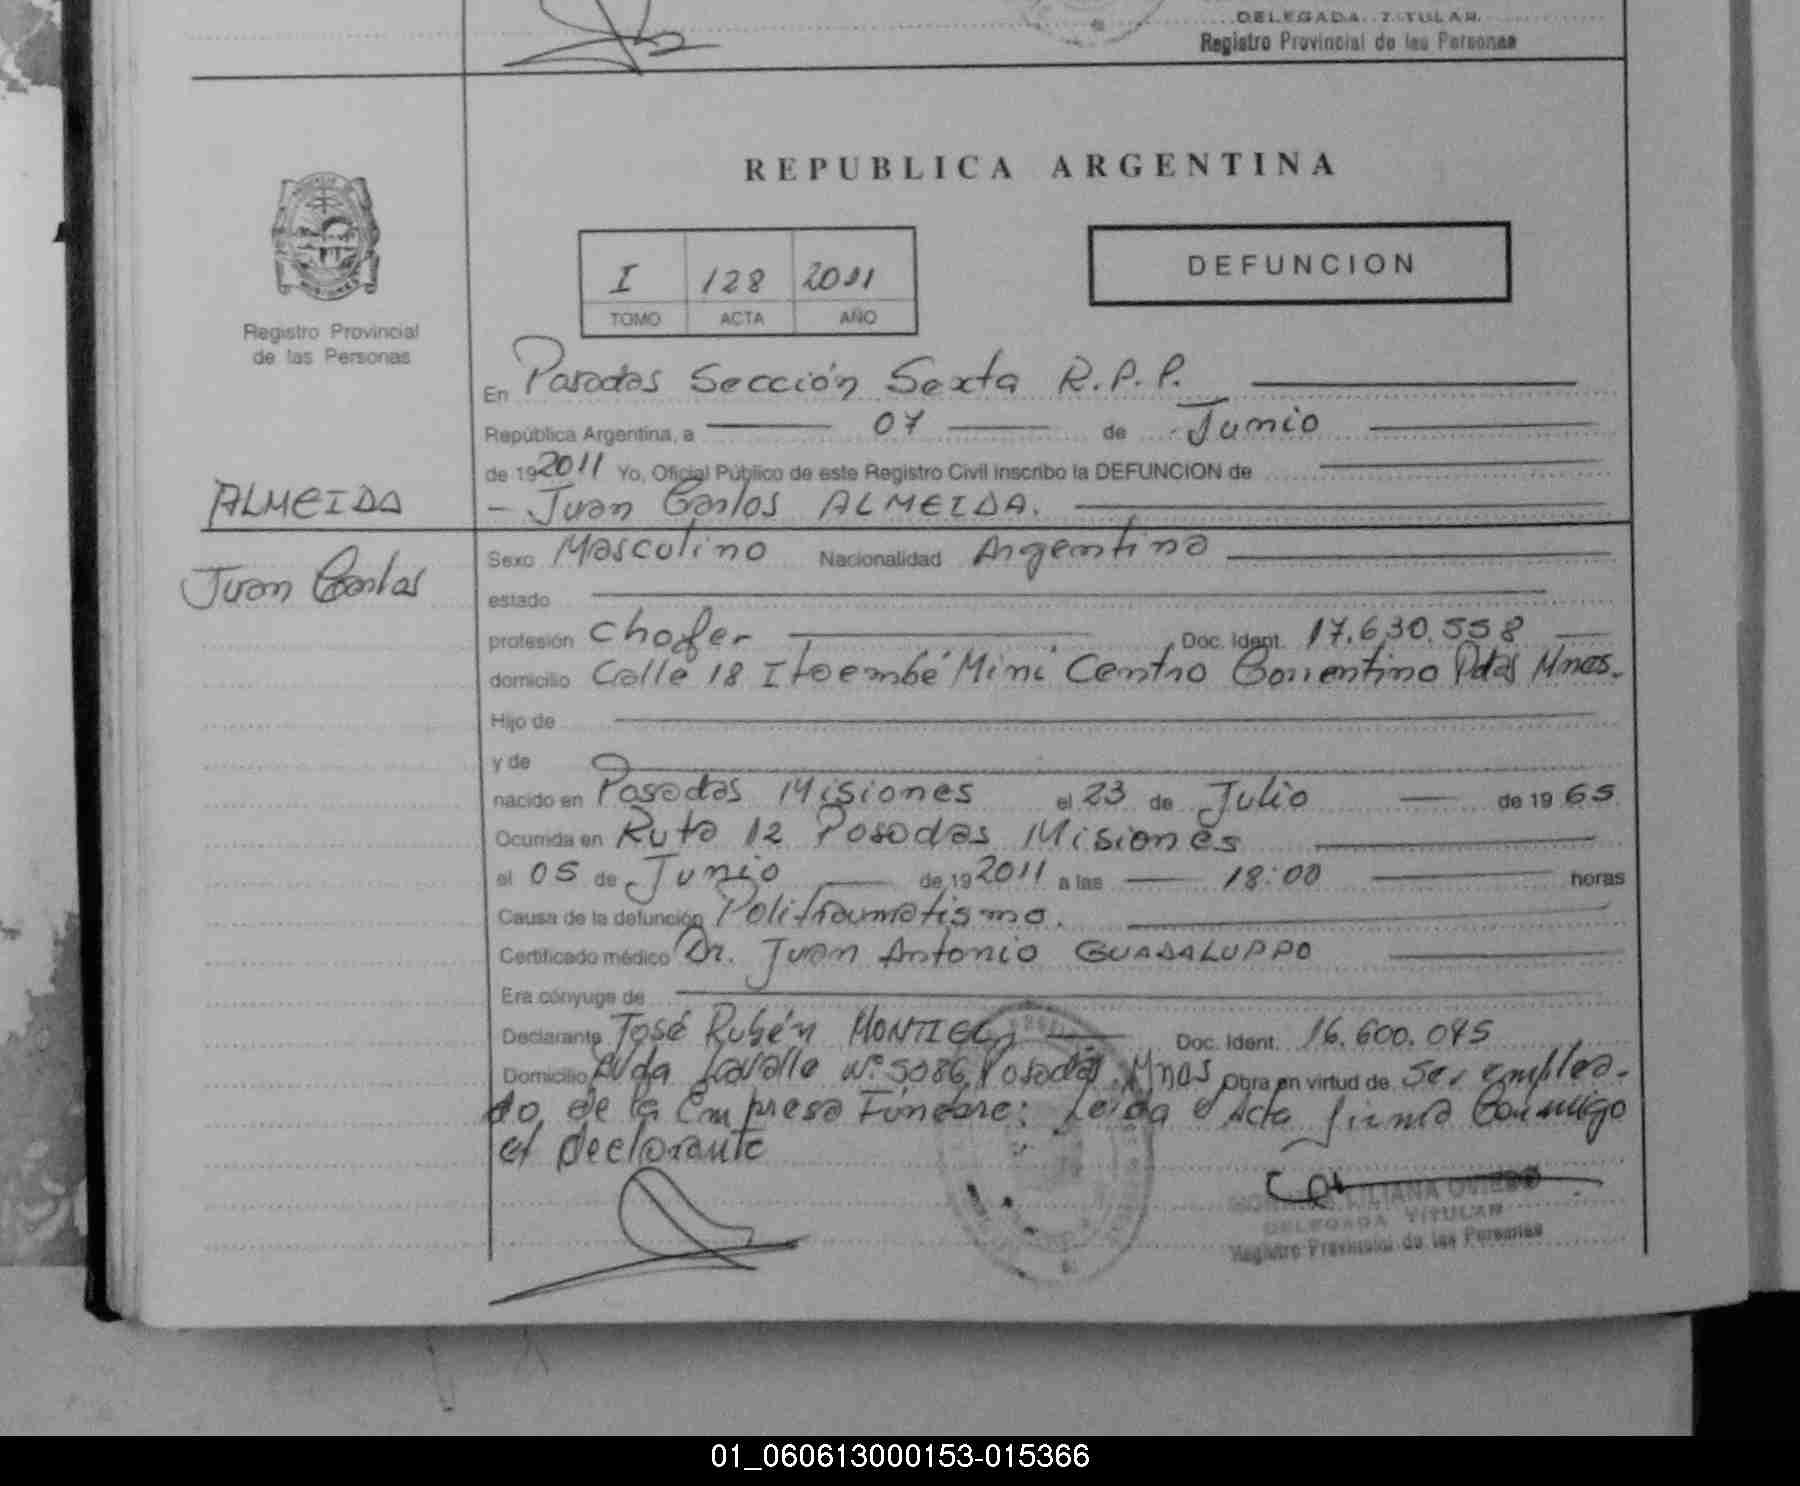 DELEGADA TITULAR
Registro Provincial de las Personas
REPUBLICA ARGENTINA
I 128 2011
TOMO ACTA AÑO
DEFUNCION
Registro Provincial
de las Personas
En Posadas Sección Sexta R.P.P.
República Argentina, a 07 de Junio
de 192011 Yo, Oficial Público de este Registro Civil inscribo la DEFUNCION de
ALMEIDA
- Juan Carlos ALMEIDA.
Juan Carlos
Sexo Masculino Nacionalidad Argentina
estado
profesión chofer Doc. Ident. 17.630.558
domicilio Calle 18 Itaembé Mini Centro Correntino Pdas Mnes.
Hijo de
y de
nacido en Posadas Misiones el 23 de Julio de 19 65
Ocurrida en Ruta 12 Posadas Misiones
el 05 de Junio de 192011 a las 18:00 horas
Causa de la defunción Politraumatismo.
Certificado médico Dr. Juan Antonio GUADALUPPO
Era cónyuge de
Declarante José Rubén MONTIEL Doc. Ident. 16.600.045
Domicilio Avda Lavalle Nº 5086 Posadas Mnes Obra en virtud de Ser emplea-
do de la Empresa Fúnebre: Leída el Acta firma Conmigo
el Declarante
LILIANA OVIEDO
DELEGADA TITULAR
Registro Provincial de las Personas
01_060613000153-015366